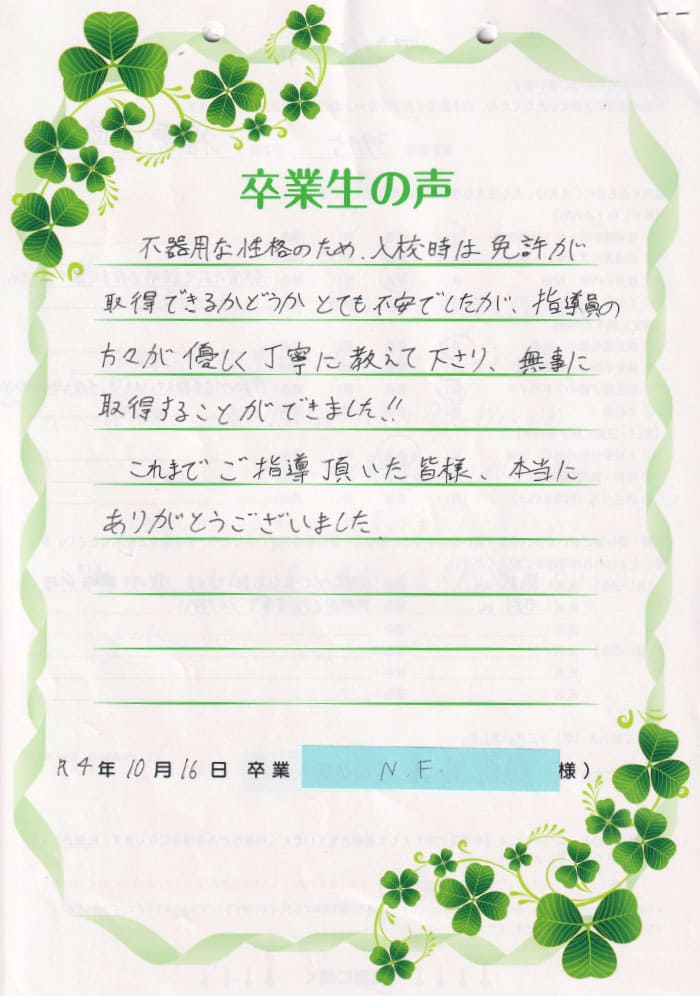 卒業生の声
不器用な性格のため、入校時は免許が
取得できるかどうかとても不安でしたが、指導員の
方々が優しく丁寧に教えて下さり、無事に
取得することができました!!
これまでご指導頂いた皆様、本当に
ありがとうございました。
R4年10月16日 卒業 N.F. 様）